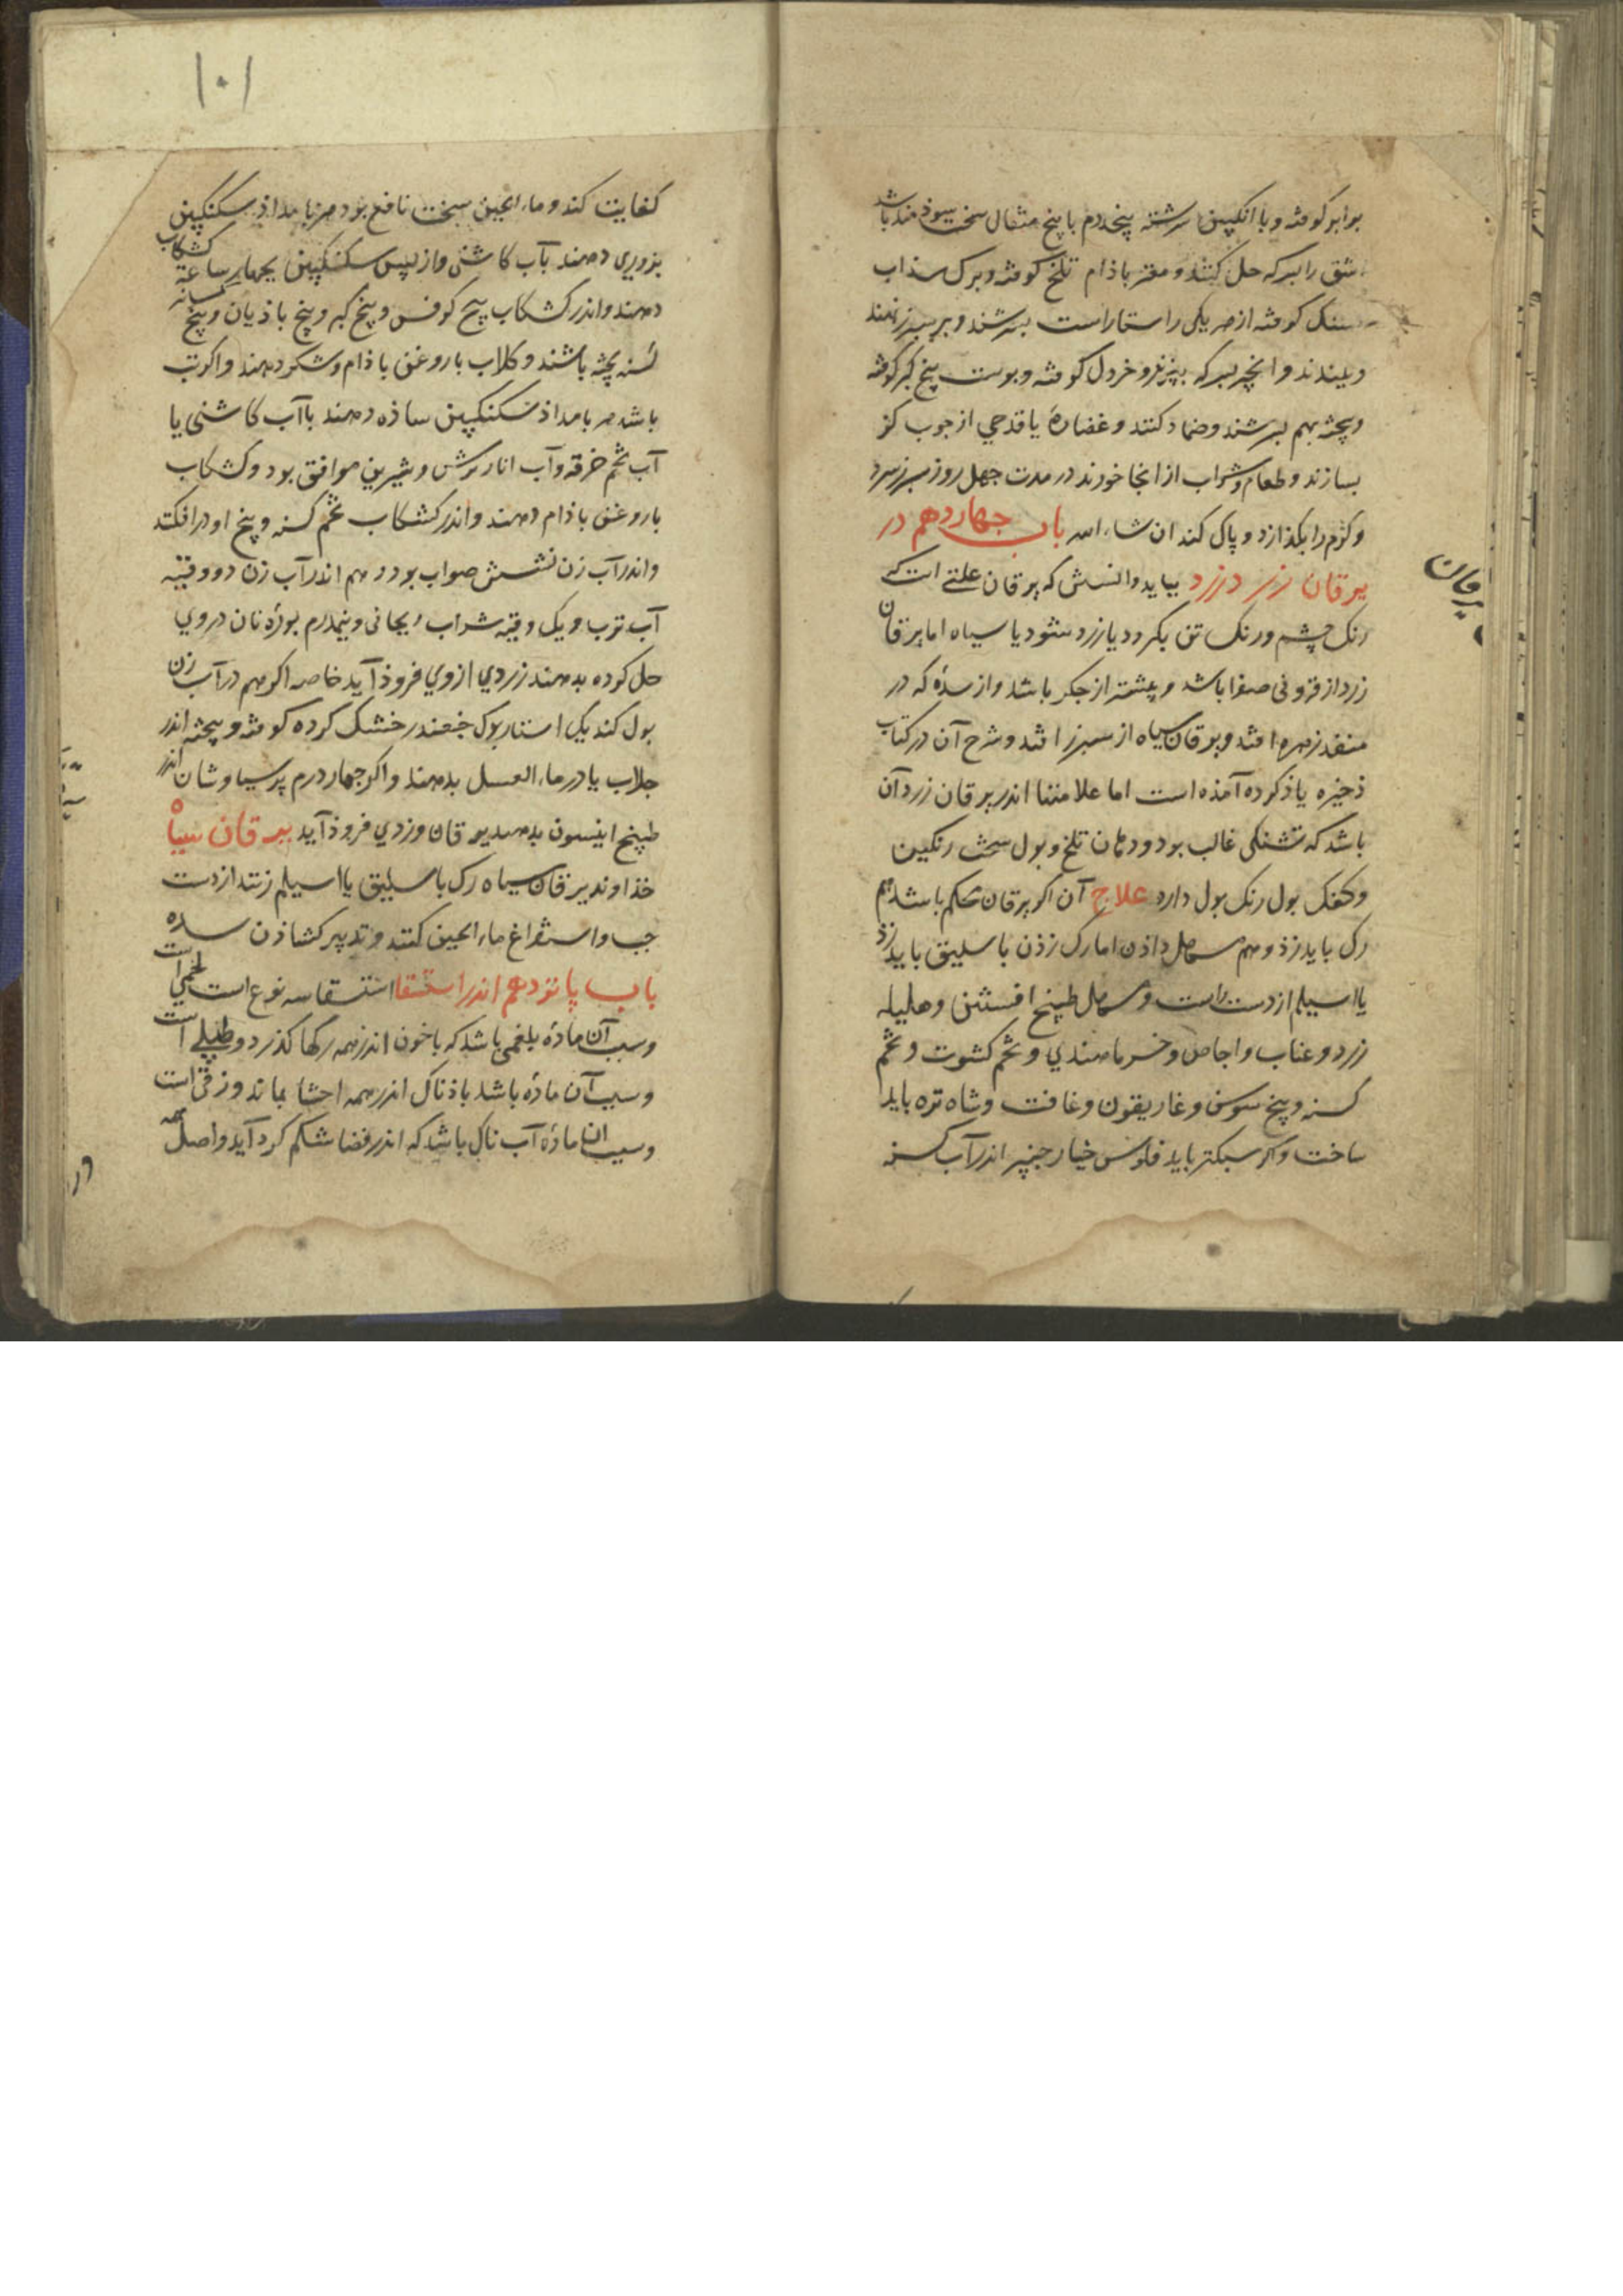 برابر کوفته و با انکبین سرشته پنجدرم با پنج مثقال سخت سوذمند باشد
اشق را بسرکه حل کنند و مغز باذام تلخ کوفته و برک سذاب
کوفته از هر یکی راستاراست بسرشند و بر سپرز نهند
و ببندند و انجیر بسرکه بپزند و خردل کوفته و پوست بیخ کبر کوفته
و پخته بهم بسرشند و ضماد کنند و غضارۀ یا قدحی از چوب کز
بسازند و طعام و شراب از انجا خورند در مدت چهل روز سپرز سرد
و کرم را بکذازد و پاک کند ان شاء الله باب چهاردهم در
یرقان
یرقان زرد بباید دانستن که یرقان علتی است که
رنک چشم و رنک تن بکردد یا زرد شود یا سیاه اما یرقان
زرد از فزونی صفرا باشد و بیشتر از جکر باشد و از سدۀ که در
منفذ زهره افتد و یرقان سیاه از سپرز افتد و شرح آن در کتاب
ذخیره یاذ کرده آمذه است اما علامتها اندر یرقان زرد آن
باشد که تشنکی غالب بود و دهان تلخ و بول سخت رنکین
و کفک بول رنک بول دارد علاج آن اکر یرقان محکم باشد هم
رک باید زذ و هم مسهل داذن اما رک زذن باسلیق باید زذ
یا اسیلم از دست راست و مسهل طبیخ افسنتین و هلیله
زرد و عناب و اجاص و خرماهندی و تخم کشوت و تخم
کسنه و بیخ سوسن و غاریقون و غافت و شاه تره باید
ساخت و اکر سبکتر باید فلوس خیارچنبر اندر آب کسنه
۱۰۱
کفایت کند و ماء الجبن سخت نافع بود هر بامداذ سکنکبین
بزوری دهند بآب کاشنی و از پس سکنکبین بچهار ساعة کشکاب
دهند و اندر کشکاب بیخ کرفس و بیخ کبر و بیخ باذیان و بیخ
کسنه پخته باشند و کلاب با روغن باذام و شکر دهند و اکر تب
باشد هر بامداذ سکنکبین ساذه دهند با آب کاشنی یا
آب تخم خرفه و آب انار ترش و شیرین موافق بود و کشکاب
با روغن باذام دهند و اندر کشکاب تخم کسنه و بیخ او درافکنند
و اندر آب زن نشستن صواب بود و هم اندر آب زن دو وقیه
آب ترب و یک وقیه شراب ریحانی و نیمدرم بورۀ نان در وی
حل کرده بدهند زردی از وی فروذ آید خاصه اکر هم در آب زن
بول کند یک استار بوک خشک کرده کوفته و بیخته اندر
جلاب یا در ماء العسل بدهند و اکر چهار درم پرسیاوشان اندر
طبیخ انیسون بدهند یرقان و زردی فروذ آید یرقان سیاه
خذاوند یرقان سیاه رک باسلیق یا اسیلم زنند از دست
چپ و استفراغ ماء الجبن کنند و تدبیر کشاذن سده
باب پانزدهم اندر استسقا استسقا سه نوع است لحمی است
و سبب آن مادۀ بلغمی باشد که با خون اندر همه رکها کذرد و طبلی است
و سبب آن مادۀ باشد باذناک اندر همه احشا بماند و زقی است
و سبب آن مادۀ آب ناک باشد که اندر فضا شکم کرد آید و اصل همه